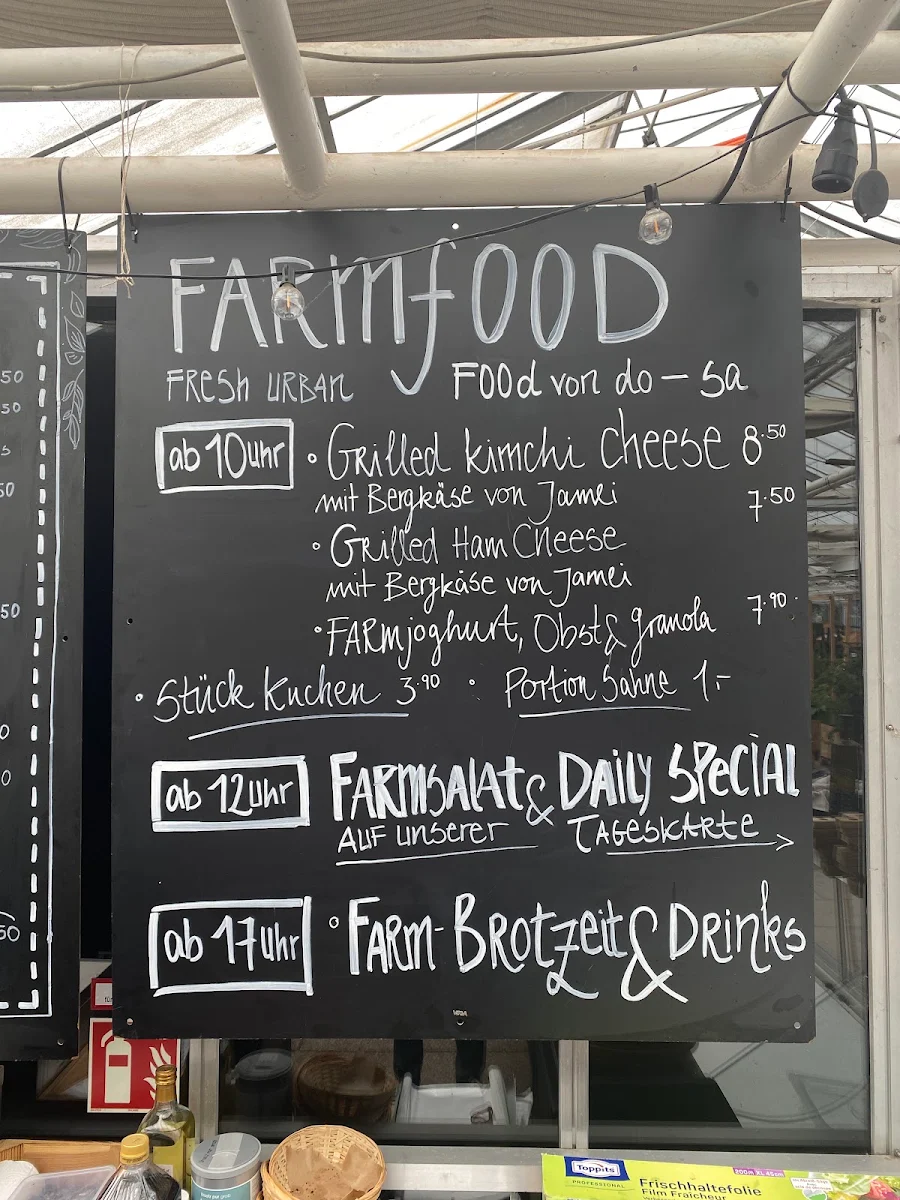 FARMfOOD
FResh URBAN
FOOd von do – sa
ab 10 uhr
• Grilled kimchi cheese 8.50
mit Bergkäse von Jamei
7.50
• Grilled Ham Cheese
mit Bergkäse von Jamei
• FARMjoghurt, Obst & granola 7.90
• Stück kuchen 3.90 • Portion Sahne 1.-
ab 12 uhr
FARMSALAT & DAILY SPECIAL
AUF unserer TAGESKARTE →
ab 17 uhr
• FARM-BROTZeit & DRinks
50
50
5
50
50
0
0
50
Toppits
PROFESSIONAL
Frischhaltefolie
Film Fraîcheur
200m XL 45cm